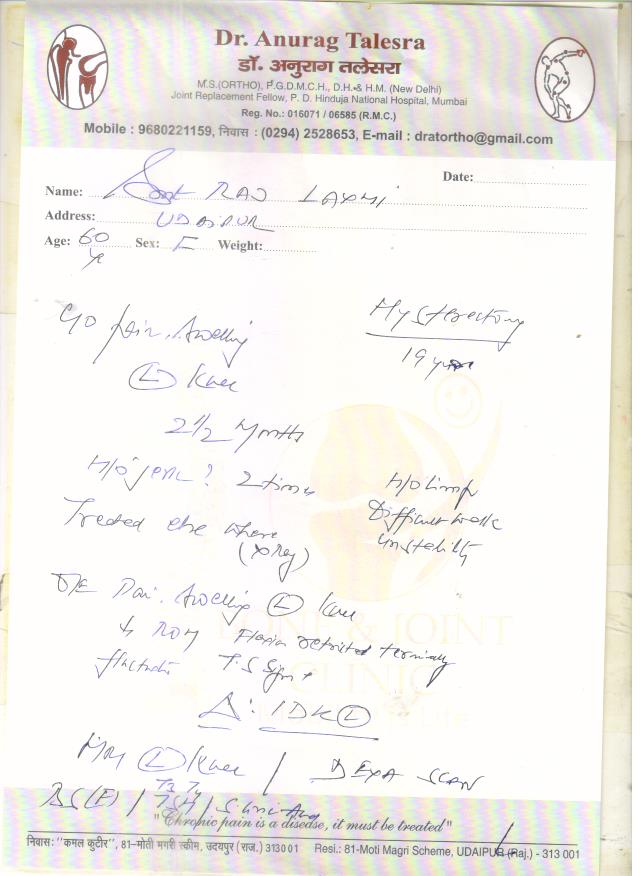 Dr. Anurag Talesra
डॉ. अनुराग तलेसरा
M.S.(ORTHO), P.G.D.M.C.H., D.H.& H.M. (New Delhi)
Joint Replacement Fellow, P. D. Hinduja National Hospital, Mumbai
Reg. No.: 016071 / 06585 (R.M.C.)
Mobile : 9680221159, निवास : (0294) 2528653, E-mail : dratortho@gmail.com
Date:
Name: Smt RAJ LAXMI
Address: UDAIPUR
Age: 60 Sex: F Weight:
C/o pain, swelling
(L) Knee
2 1/2 Months
Hysterectomy
19 years
H/o jerk ? 2 times
Treated else where
(X Ray)
H/o limp
Difficult walk
instability
O/E Pain. Swelling (L) Knee
↓ ROM Flexion restricted terminally
BONE & JOINT
CLINIC
Δ: IDK (L)
MRI (L) Knee / DEXA SCAN
BS(F) / T3 T4 TSH /
"Chronic pain is a disease, it must be treated"
निवास: "कमल कुटीर", 81-मोती मगरी स्कीम, उदयपुर (राज.) 313001 Resi.: 81-Moti Magri Scheme, UDAIPUR (Raj.) - 313 001